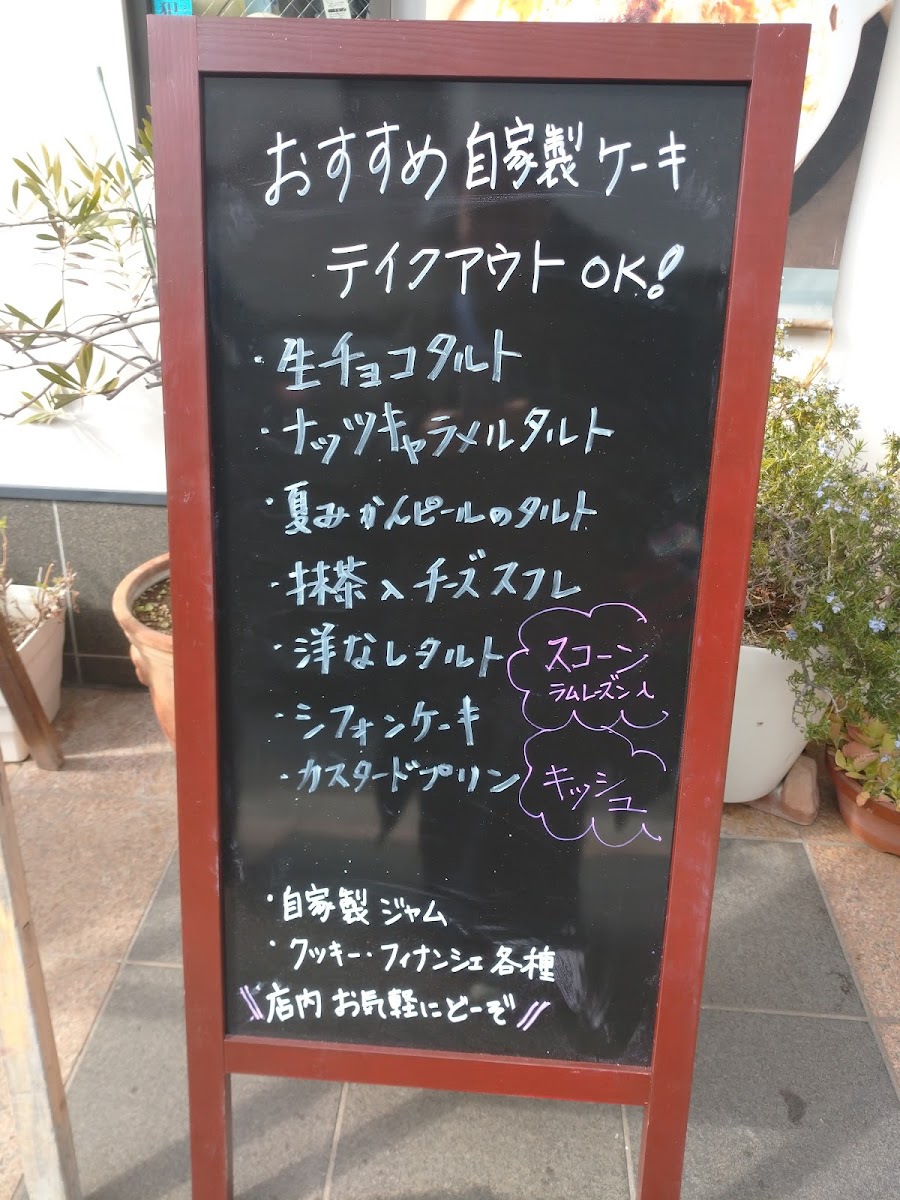 おすすめ自家製ケーキ
テイクアウトOK!
・生チョコタルト
・ナッツキャラメルタルト
・夏みかんピールのタルト
・抹茶入チーズスフレ
・洋なしタルト
スコーン
ラムレーズン入
・シフォンケーキ
・カスタードプリン
キッシュ
・自家製ジャム
・クッキー・フィナンシェ各種
\\店内お気軽にどーぞ//